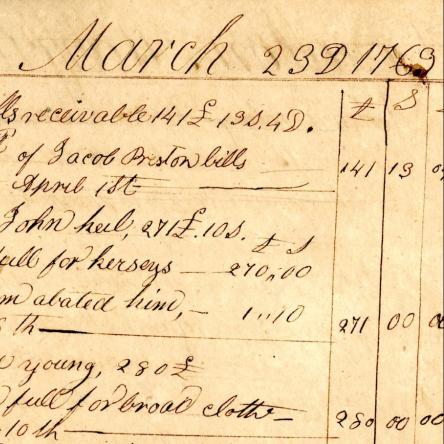 March 23D 1763
lls receivable 141£ 13s. 4D. £ S
of Jacob Preston bills 141 13
April 1st
John keil, 271£. 10s. £ S
full for kerseys — 270,,00
m abated him, — 1,,10
th 271 00 00
young, 280£
full for broad cloth —
10th 280 00 00